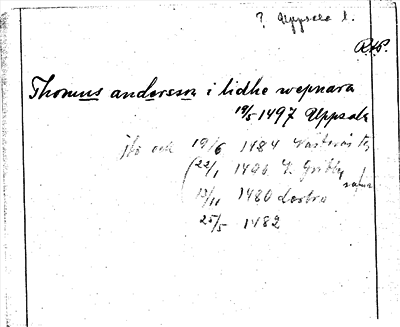 ? Uppsala l.
R.A.P.
Thomus andersson i lidhe wepnara
19/5 1497 Uppsala
och 19/6 1484 Västerås
(22/1 1496
13/11 1480
25/5 1482